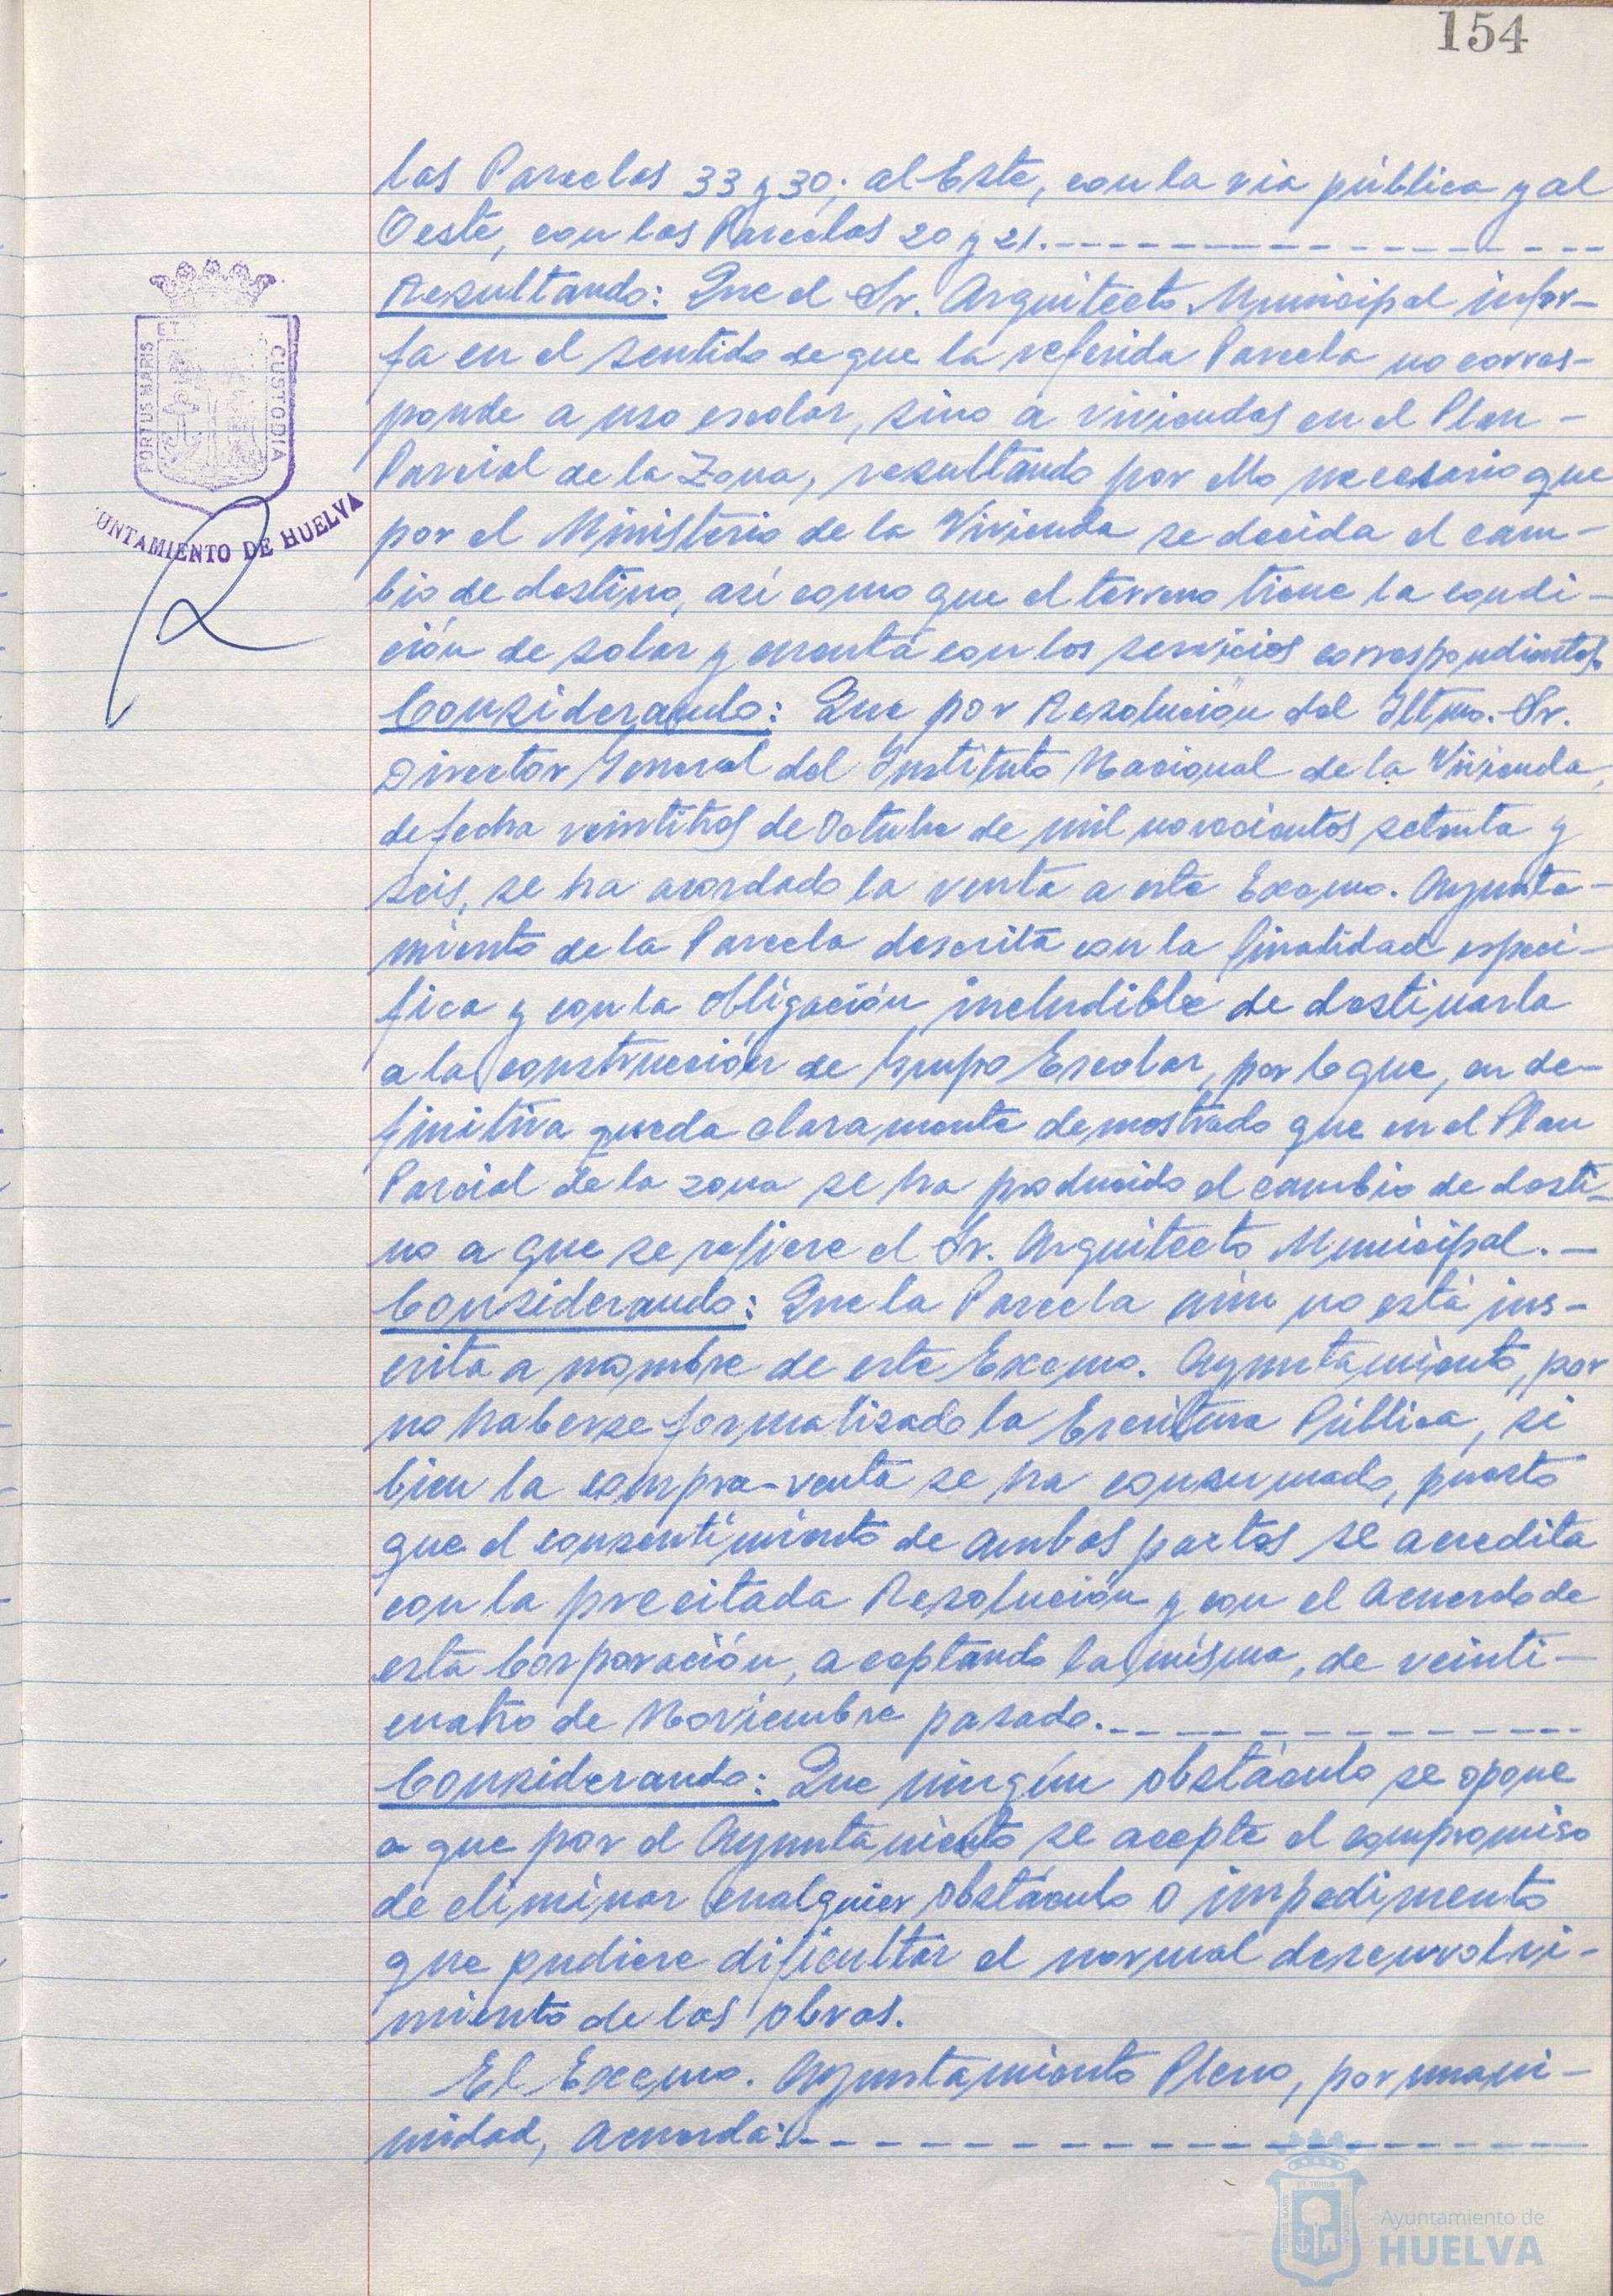 154
las Parcelas 33 y 30; al Este, con la via pública y al
Oeste, con las Parcelas 20 y 21.
Resultando: Que el Sr. Arquitecto Municipal infor-
fa en el sentido de que la referida Parcela no corres-
ponde a uso escolar, sino a viviendas en el Plan-
Parcial de la Zona, resultando por ello necesario que
por el Ministerio de la Vivienda se decida el cam-
bio de destino, así como que el terreno tiene la condi-
ción de solar y cuenta con los servicios correspondientes.
Considerando: Que por Resolución del Iltmo. Sr.
Director General del Instituto Nacional de la Vivienda,
de fecha veintitres de Octubre de mil novecientos setenta y
seis, se ha acordado la venta a este Excmo. Ayunta-
miento de la Parcela descrita con la finalidad especi-
fica y con la obligación ineludible de destinarla
a la construcción de Grupo Escolar, por lo que, en de-
finitiva queda claramente demostrado que en el Plan
Parcial de la zona se ha producido el cambio de desti-
no a que se refiere el Sr. Arquitecto Municipal.-
Considerando: Que la Parcela aún no está ins-
crita a nombre de este Excmo. Ayuntamiento, por
no haberse formalizado la Escritura Pública, si
bien la compra-venta se ha consumado, puesto
que el consentimiento de ambas partes se acredita
con la precitada Resolución y con el Acuerdo de
esta Corporación, aceptando la misma, de veinti-
cuatro de Noviembre pasado.
Considerando: Que ningún obstáculo se opone
a que por el Ayuntamiento se acepte el compromiso
de eliminar cualquier obstáculo o impedimento
que pudiere dificultar el normal desenvolvi-
miento de las obras.
El Excmo. Ayuntamiento Pleno, por unani-
midad, acuerda:
PORTUS MARIS
ET
CUSTODIA
UNTAMIENTO DE HUELVA
Ayuntamiento de
HUELVA